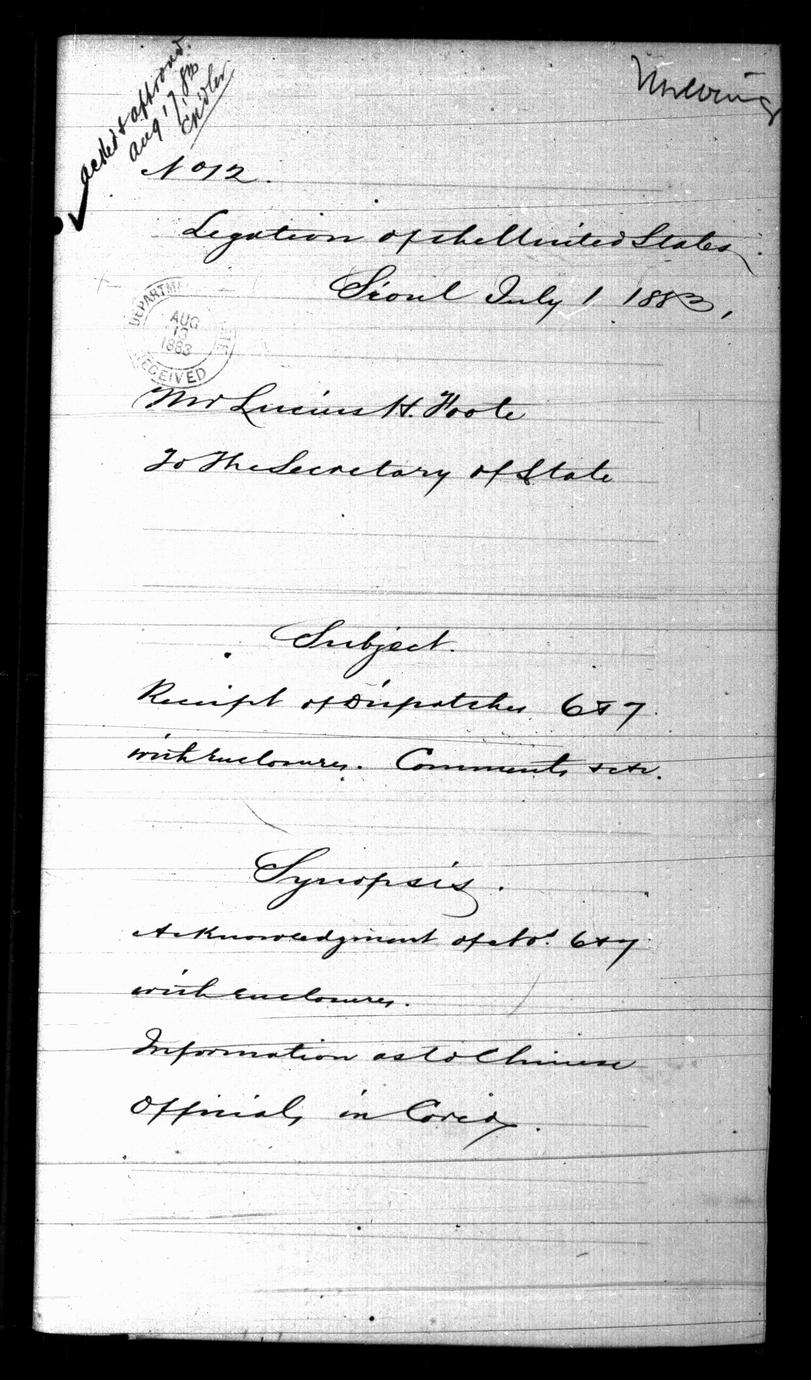 acked & approved.
Aug 17 '83
No 12.
Legation of the United States,
Séoul July 1, 1883,
DEPARTM
AUG
13
1883
RECEIVED
Mr Lucius H. Foote
To The Secretary of State
Subject.
Receipt of Dispatches 6 & 7
with Enclosures. Comments &c &c.
Synopsis.
Acknowledgment of Nos. 6 & 7
with Enclosures.
Information as to Chinese
Officials in Corea.